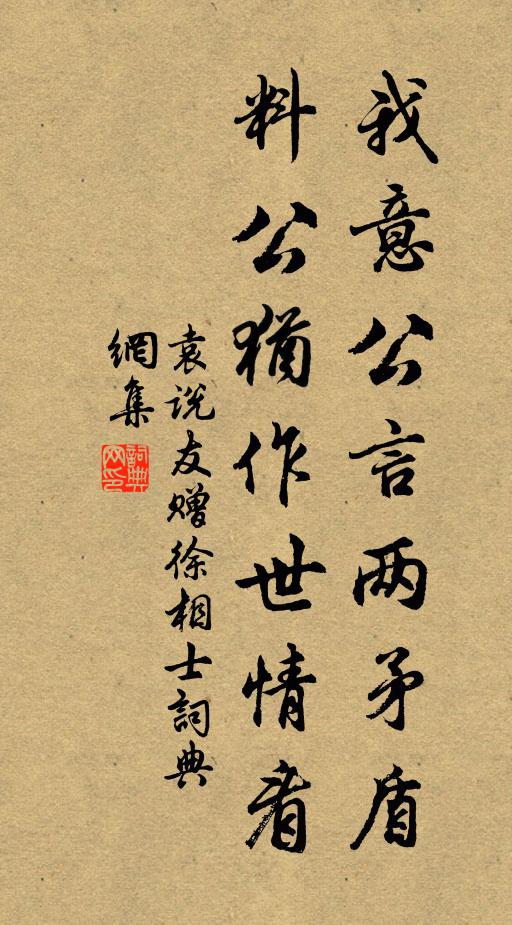 我意公言两矛盾
料公犹作世情看
袁说友赠徐相士詞典
網集
詞典网印